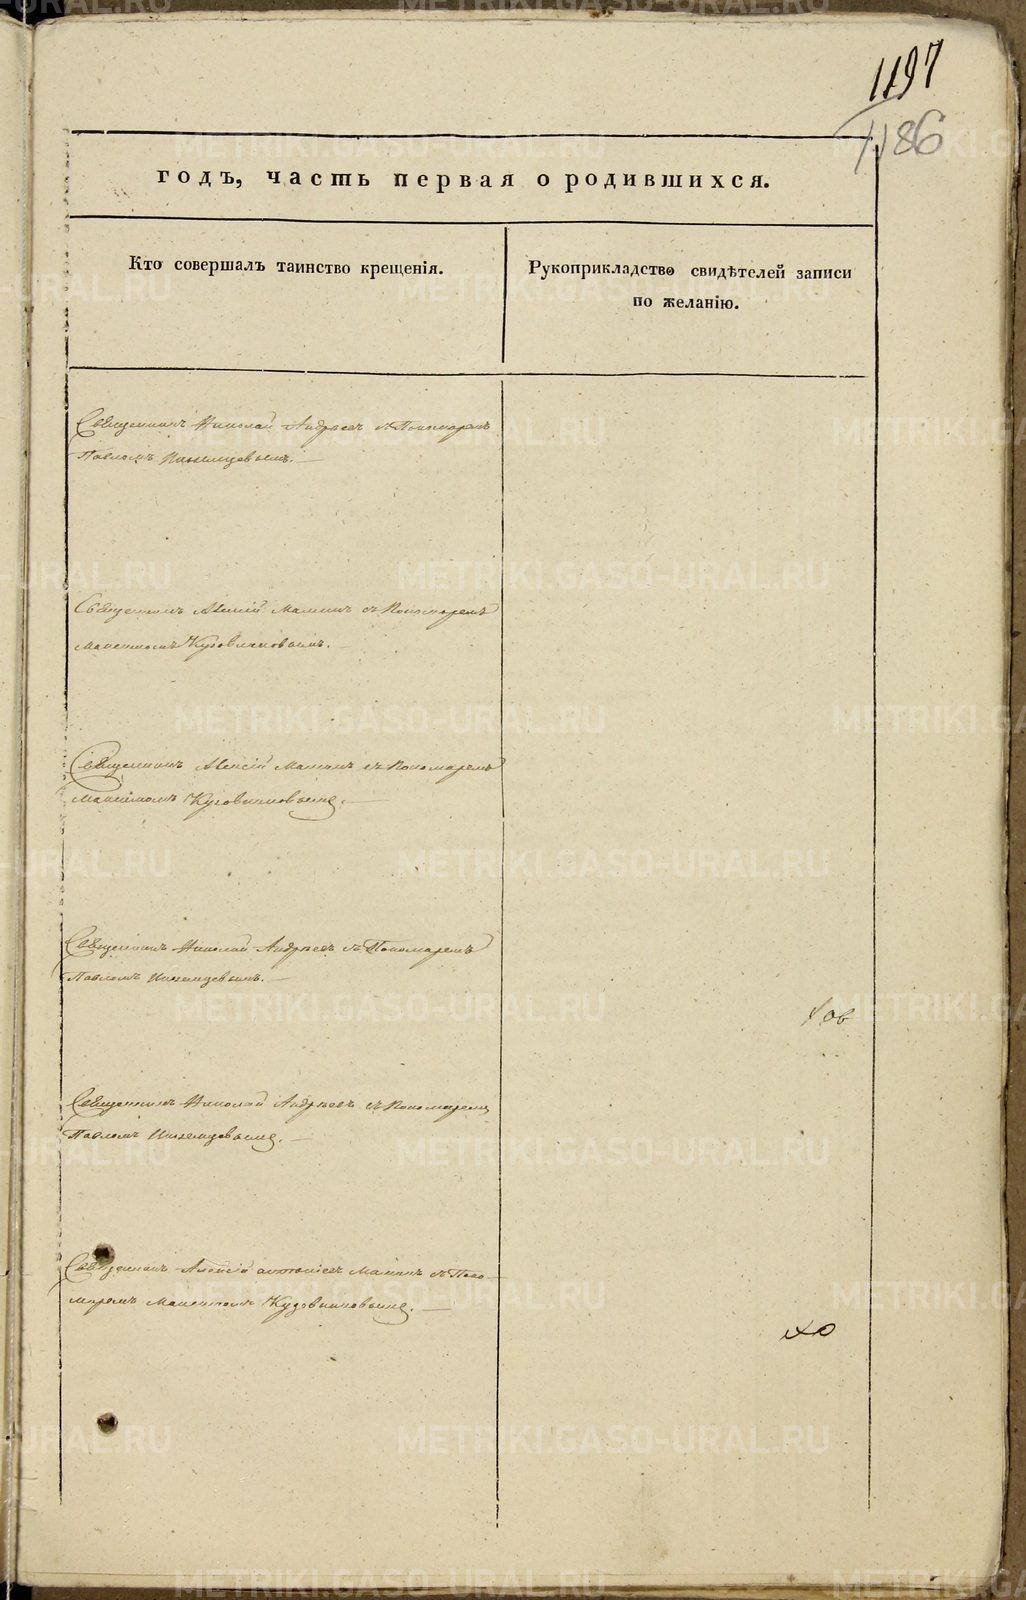 1197
1186
годъ, часть первая о родившихся.
Кто совершалъ таинство крещенія.
Рукоприкладство свидѣтелей записи
по желанію.
Священникъ Николай Андреевъ съ Пономаремъ
Павломъ Иноземцовымъ.
Священникъ Алексій Маминъ съ Пономаремъ
Максимомъ Кузовниковымъ.
Священникъ Алексій Маминъ съ Пономаремъ
Максимомъ Кузовниковымъ.
Священникъ Николай Андреевъ съ Пономаремъ
Павломъ Иноземцовымъ.
Священникъ Николай Андреевъ съ Пономаремъ
Павломъ Иноземцовымъ.
Священникъ Алексій Маминъ съ Поно-
маремъ Максимомъ Кузовниковымъ.
METRIKI.GASO-URAL.RU